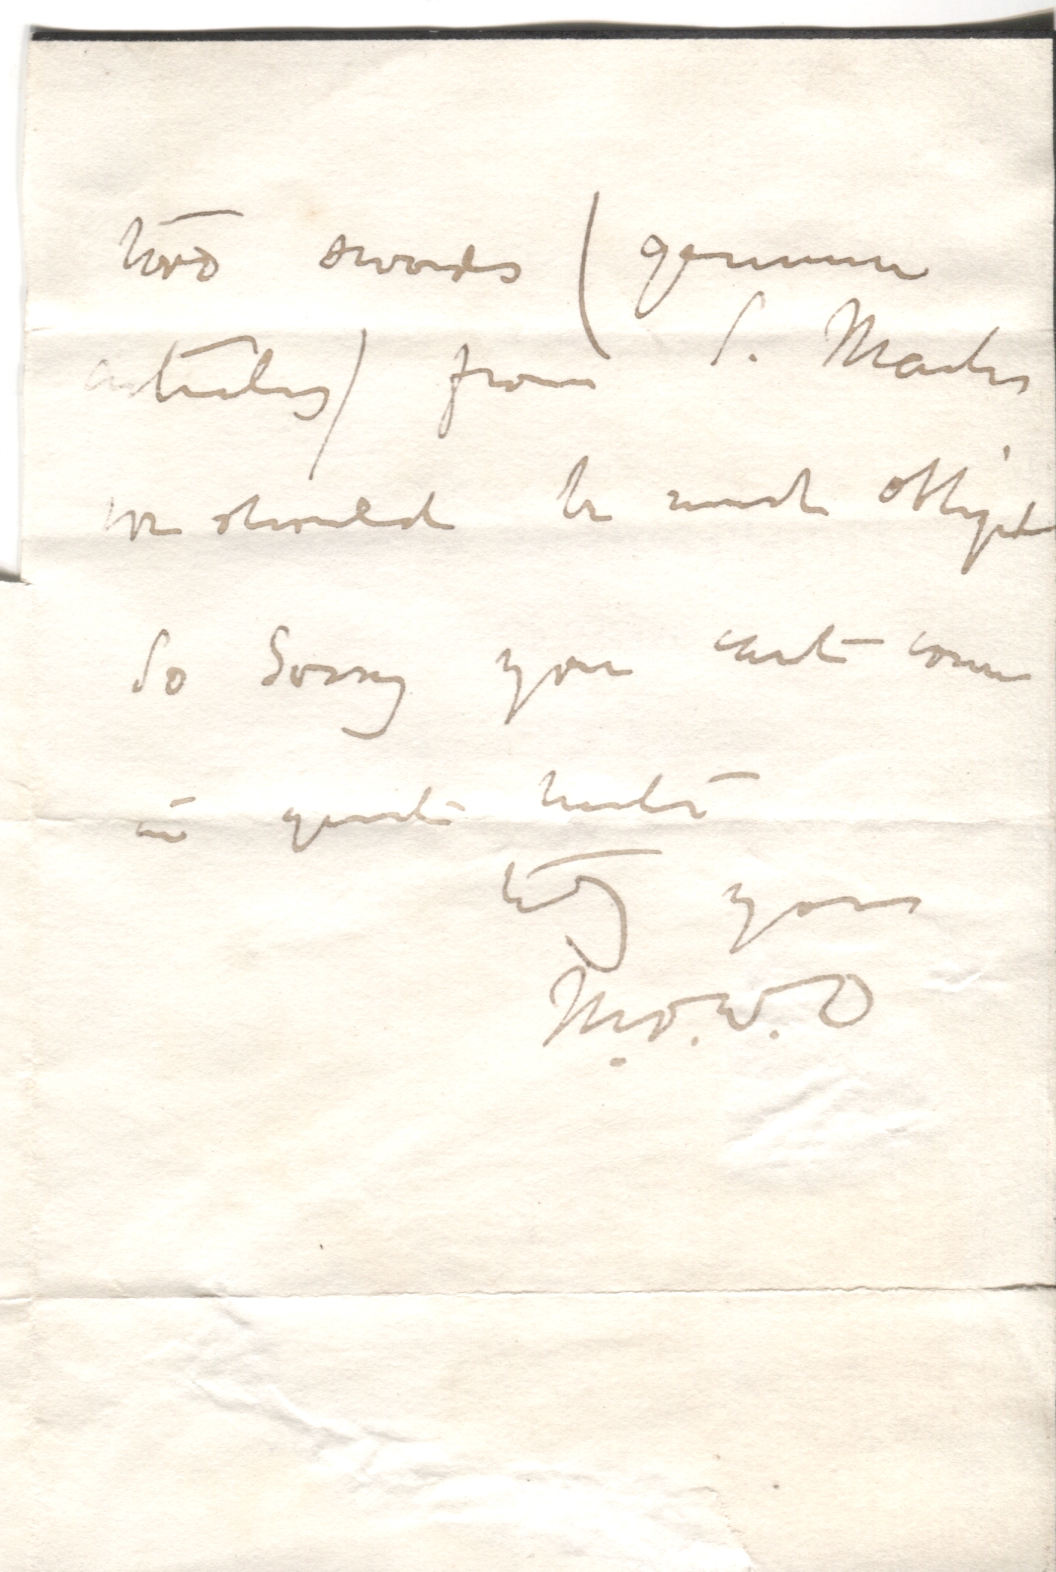 two swords (genuine
articles) from S. Marks
we should be much obliged
So Sorry you can't come
in
yours
M.O.W.O